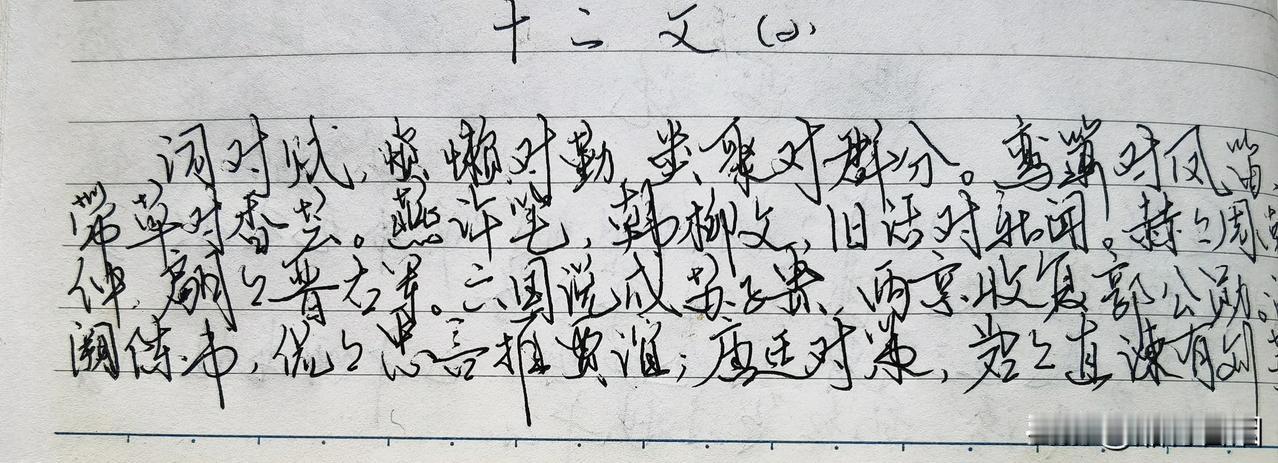 十二文(2)
词对赋，懒对勤，类聚对群分。鸾箫对凤笛，
带草对香芸。燕许笔，韩柳文，旧话对新闻。赫々周
仲，翩々晋右军。六国说成苏子贵，两京收复郭公勋。
阙陈书，侃々忠言推贾谊；唐廷对策，岩々直谏有刘